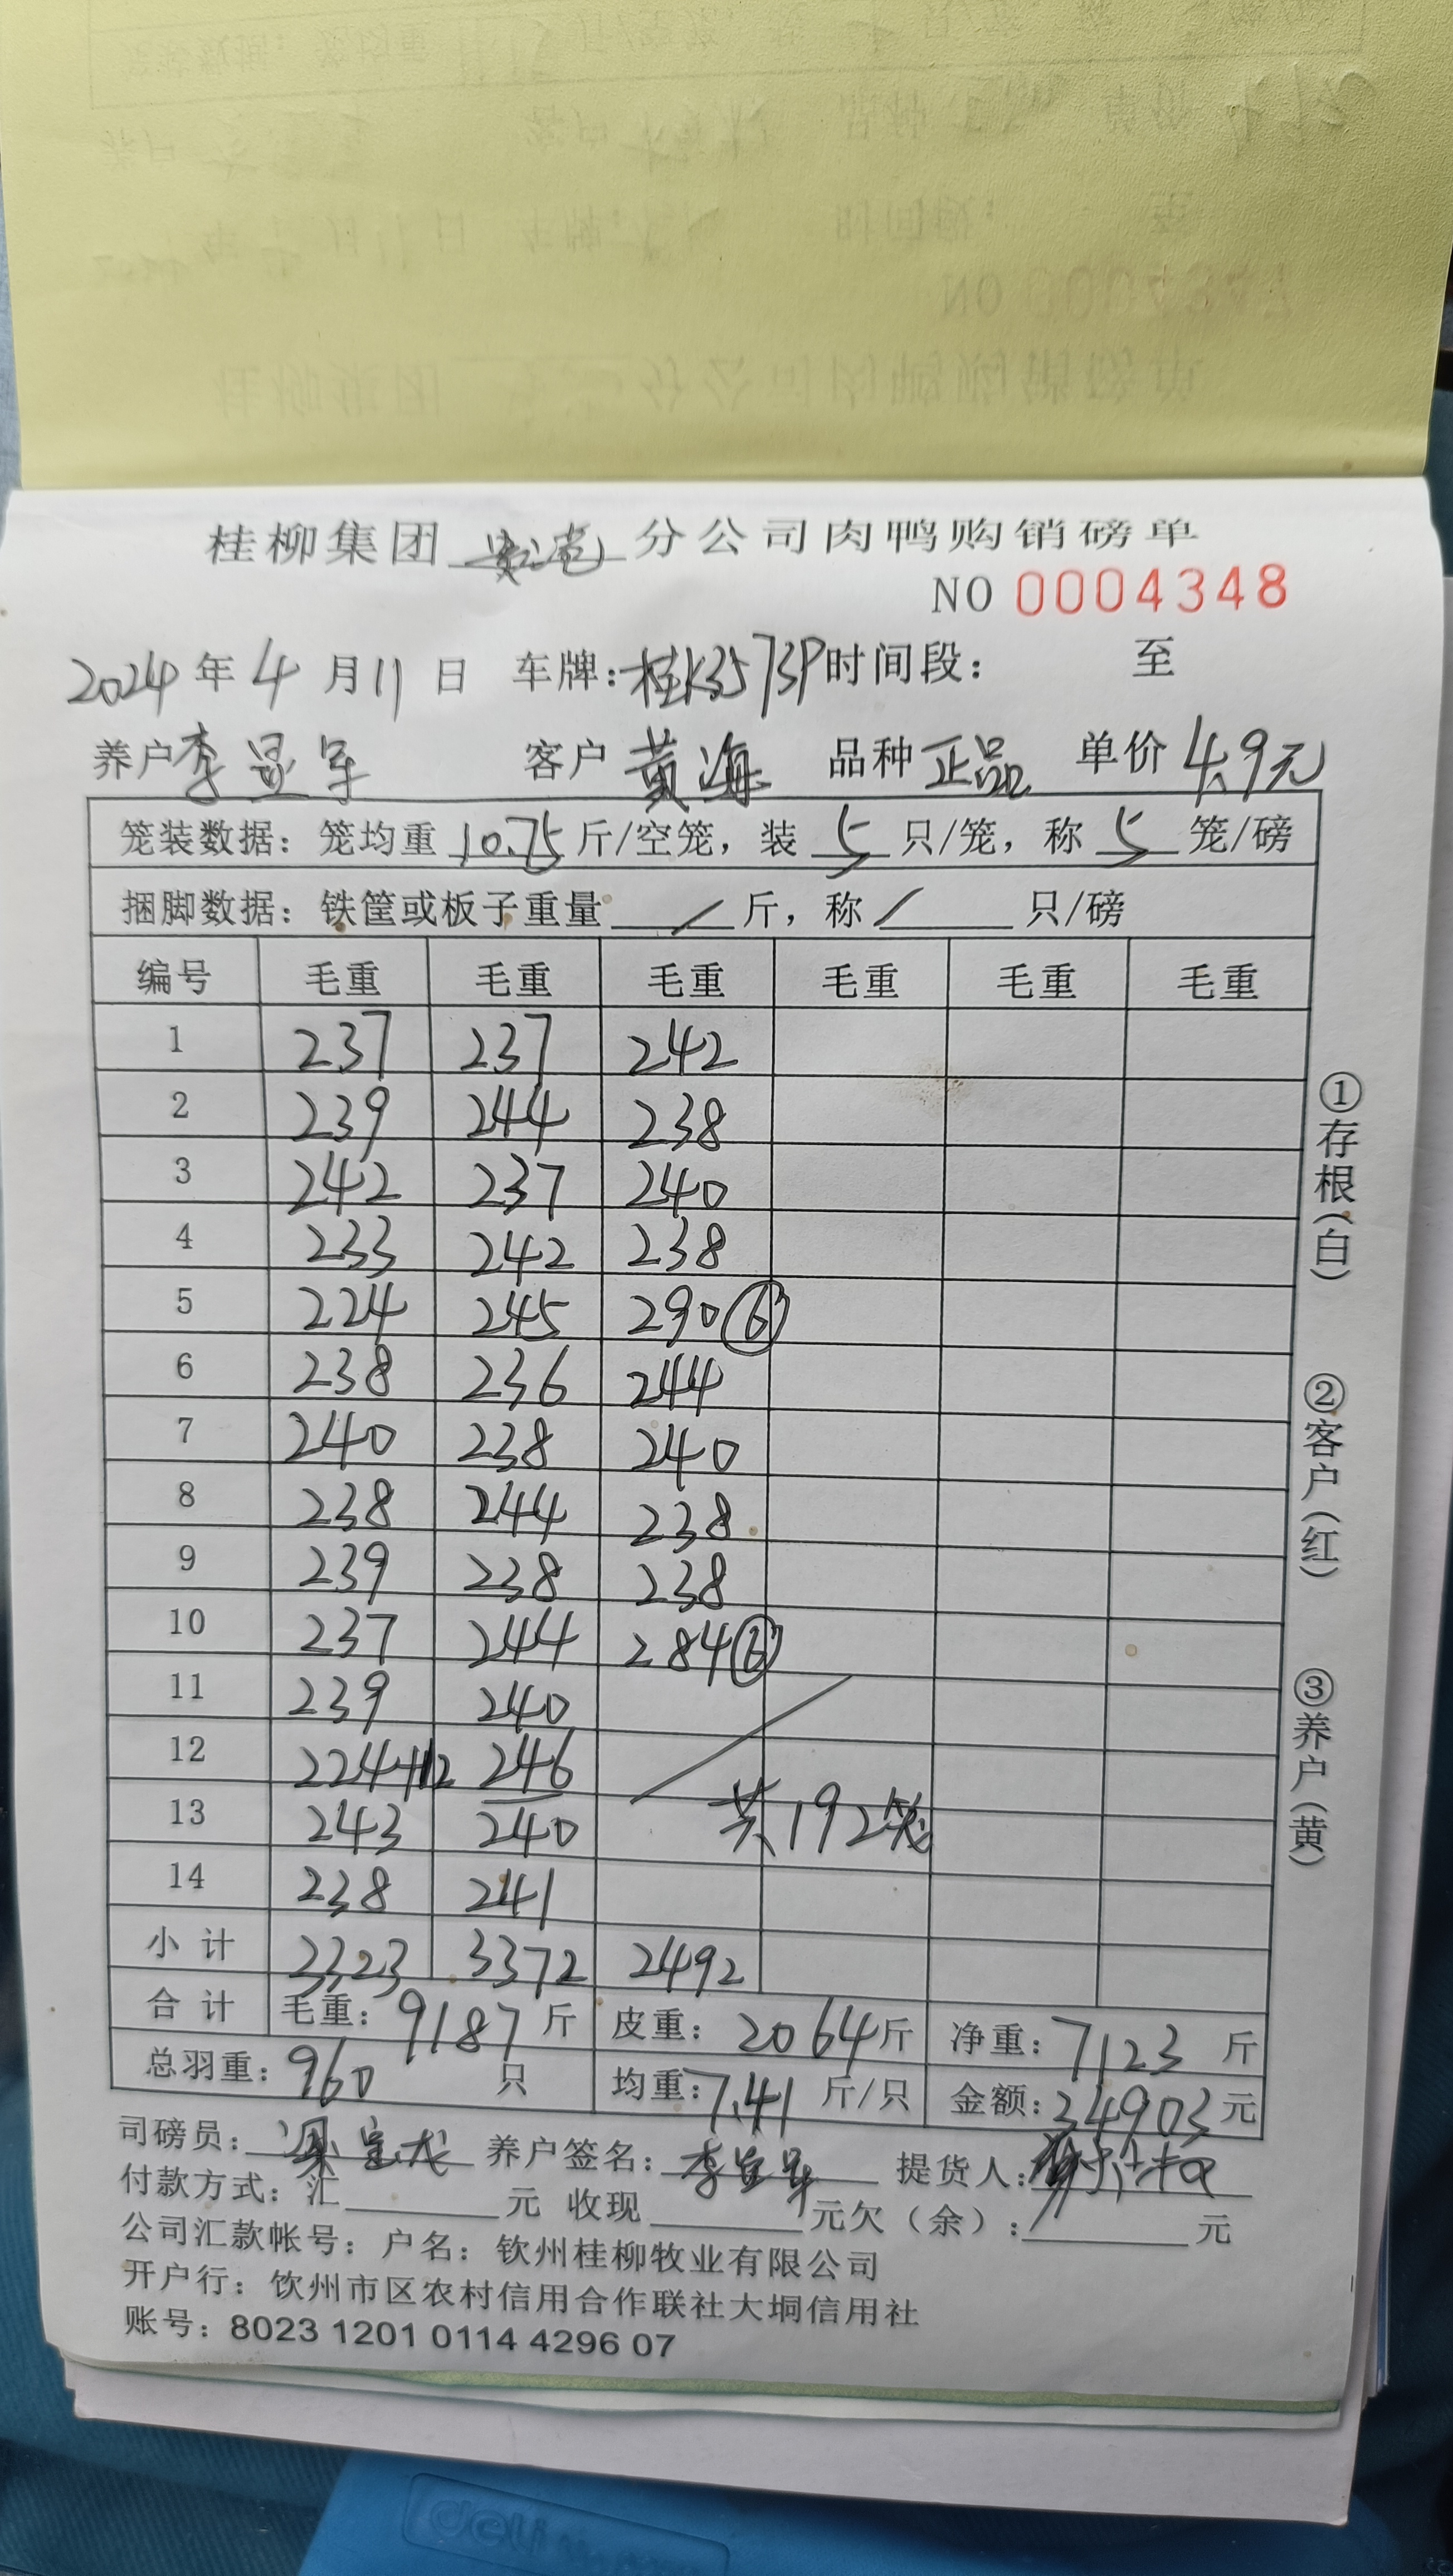 桂柳集团 分公司肉鸭购销磅单
NO 0004348
2024年4月11日 车牌:桂K3573P 时间段: 至
养户 李显军 客户 黄海 品种 正品 单价 4.9元
笼装数据: 笼均重 10.75 斤/空笼, 装 5 只/笼, 称 5 笼/磅
捆脚数据: 铁筐或板子重量 / 斤, 称 / 只/磅
编号 毛重 毛重 毛重 毛重 毛重 毛重
1 237 237 242
2 239 244 238
3 242 237 240
4 233 242 238
5 224 245 290 ⑥
6 238 236 244
7 240 238 240
8 238 244 238
9 239 238 238
10 237 244 284 ⑥
11 239 240
12 224+12 246
13 243 240 共192笼
14 238 241
小计 3323 3372 2492
合计 毛重: 9187 斤 皮重: 2064 斤 净重: 7123 斤
总羽重: 960 只 均重: 7.41 斤/只 金额: 34903 元
司磅员: 养户签名: 李显军 提货人:
付款方式: 汇 元 收现 元欠(余): 元
公司汇款帐号: 户名: 钦州桂柳牧业有限公司
开户行: 饮州市区农村信用合作联社大垌信用社
账号: 8023 1201 0114 4296 07
①存根(白)
②客户(红)
③养户(黄)
deli